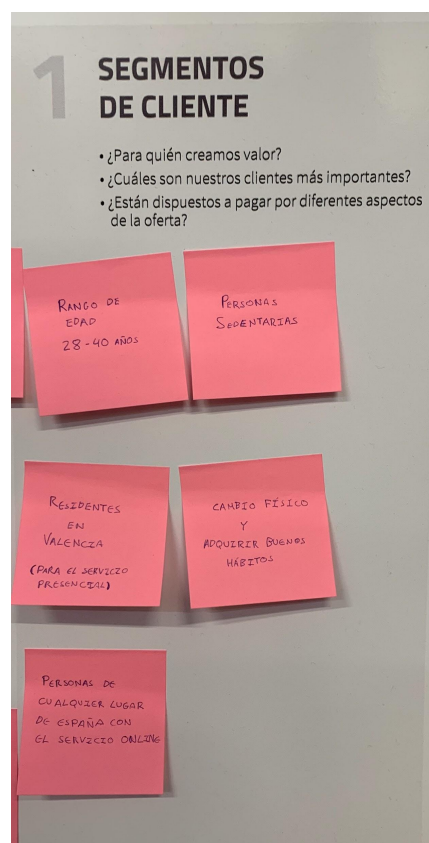 1
SEGMENTOS
DE CLIENTE
• ¿Para quién creamos valor?
• ¿Cuáles son nuestros clientes más importantes?
• ¿Están dispuestos a pagar por diferentes aspectos
de la oferta?
RANGO DE
EDAD
28-40 AÑOS
PERSONAS
SEDENTARIAS
RESIDENTES
EN
VALENCIA
(PARA EL SERVICIO
PRESENCIAL)
CAMBIO FÍSICO
Y
ADQUIRIR BUENOS
HÁBITOS
PERSONAS DE
CUALQUIER LUGAR
DE ESPAÑA CON
EL SERVICIO ONLINE